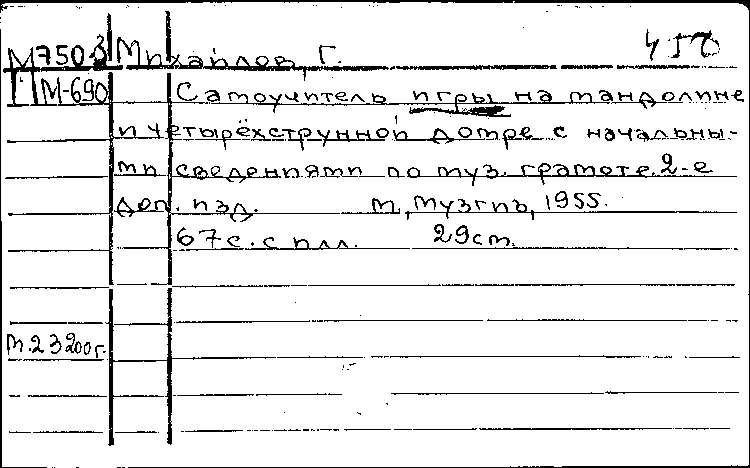 М750.3 Михайлов, Г. 450
М-690 Самоучитель игры на мандолине
и четырёхструнной домре с начальны-
ми сведениями по муз. грамоте. 2-е
доп. изд. М, Музгиз, 1955.
67с. с илл. 29см.
М.23200г.